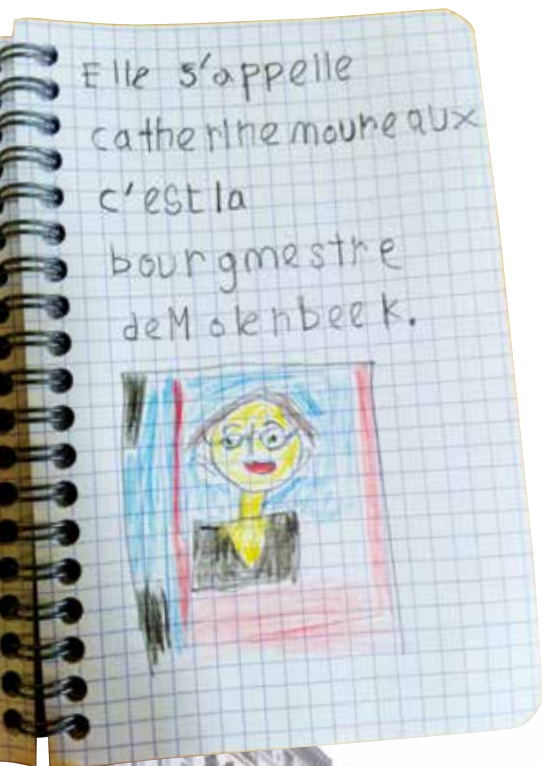 Elle s'appelle
catherine moureaux
c'est la
bourgmestre
de Molenbeek.